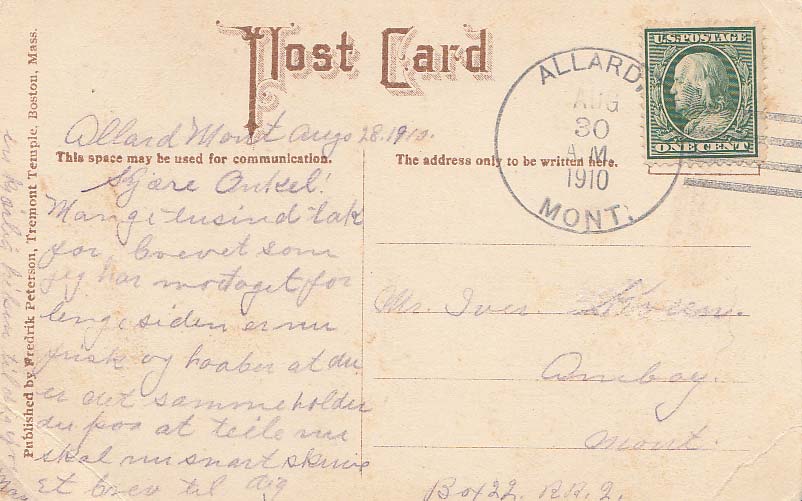 Post Card
Allard Mont Aug 28. 1910.
This space may be used for communication.
The address only to be written here.
Kjære Onkel!
Mange tusind tak
for brevet som
jeg har motaget for
lenge siden er nu
frisk og haaber at du
er det samme holder
du paa at
skal nu snart skrive
et brev til dig
Mr. Iver
Amboy.
Mont.
Box 22. RR. 2.
ALLARD,
AUG
30
A.M.
1910
MONT.
U.S. POSTAGE
ONE CENT
Published by Fredrik Peterson, Tremont Temple, Boston, Mass.